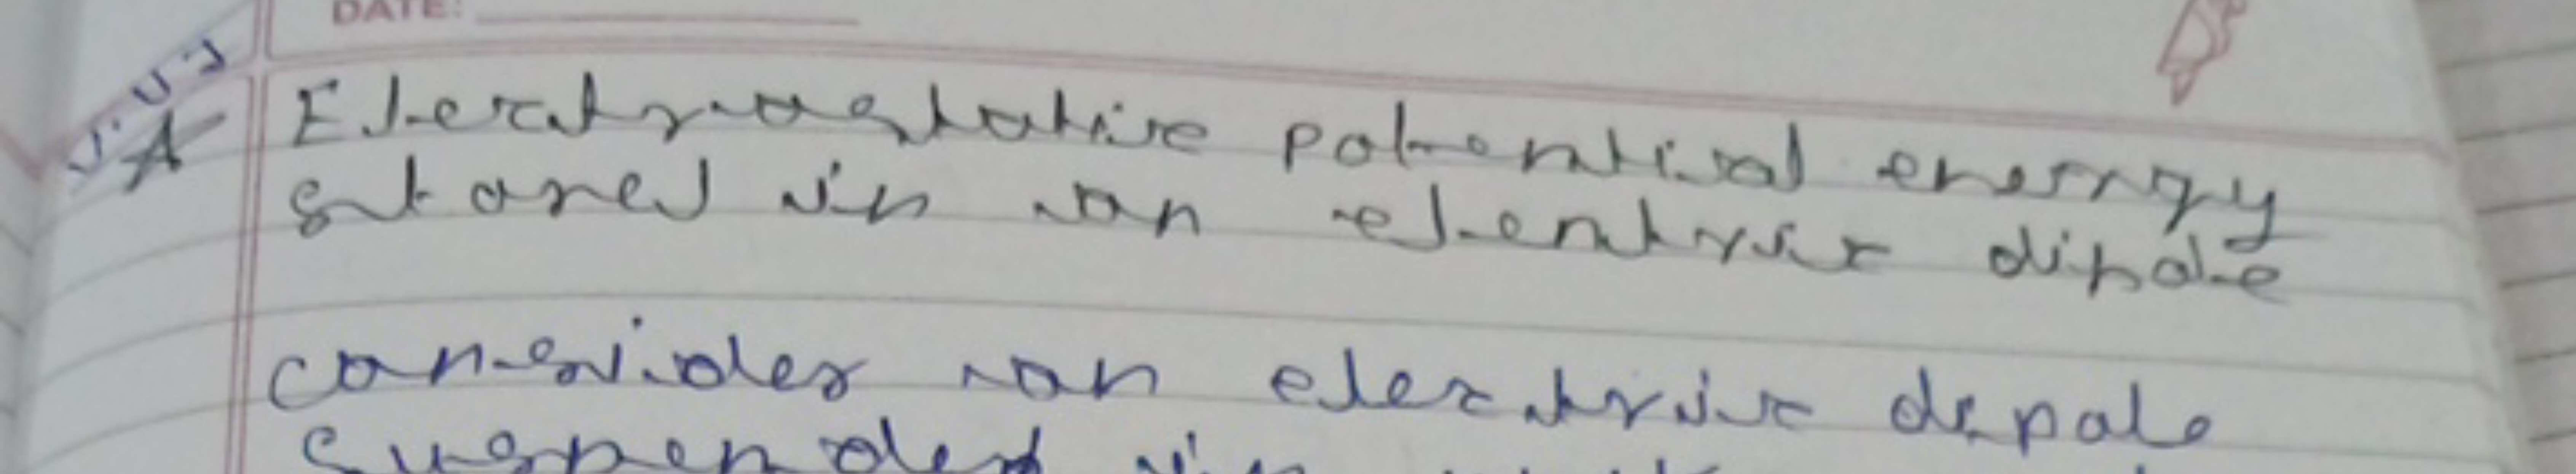 DATE:
V.V.I
Electrostatice potential energy
stored in an electric dipole
consider an electric dipole
suspended in